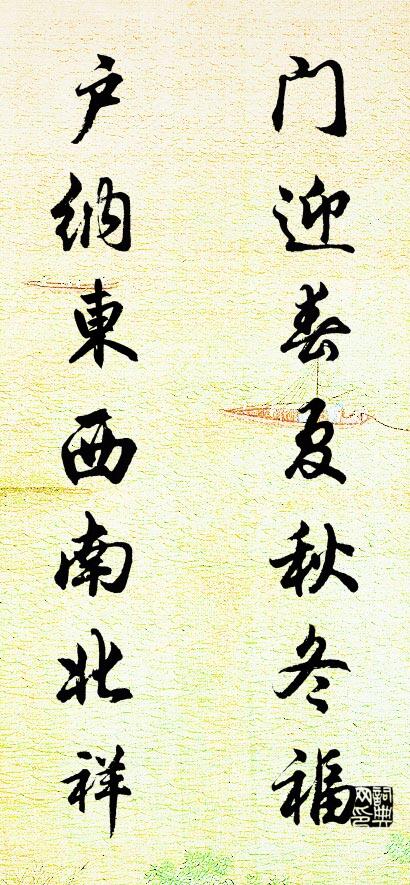 门迎春夏秋冬福
户纳東西南北祥
詞典
网印